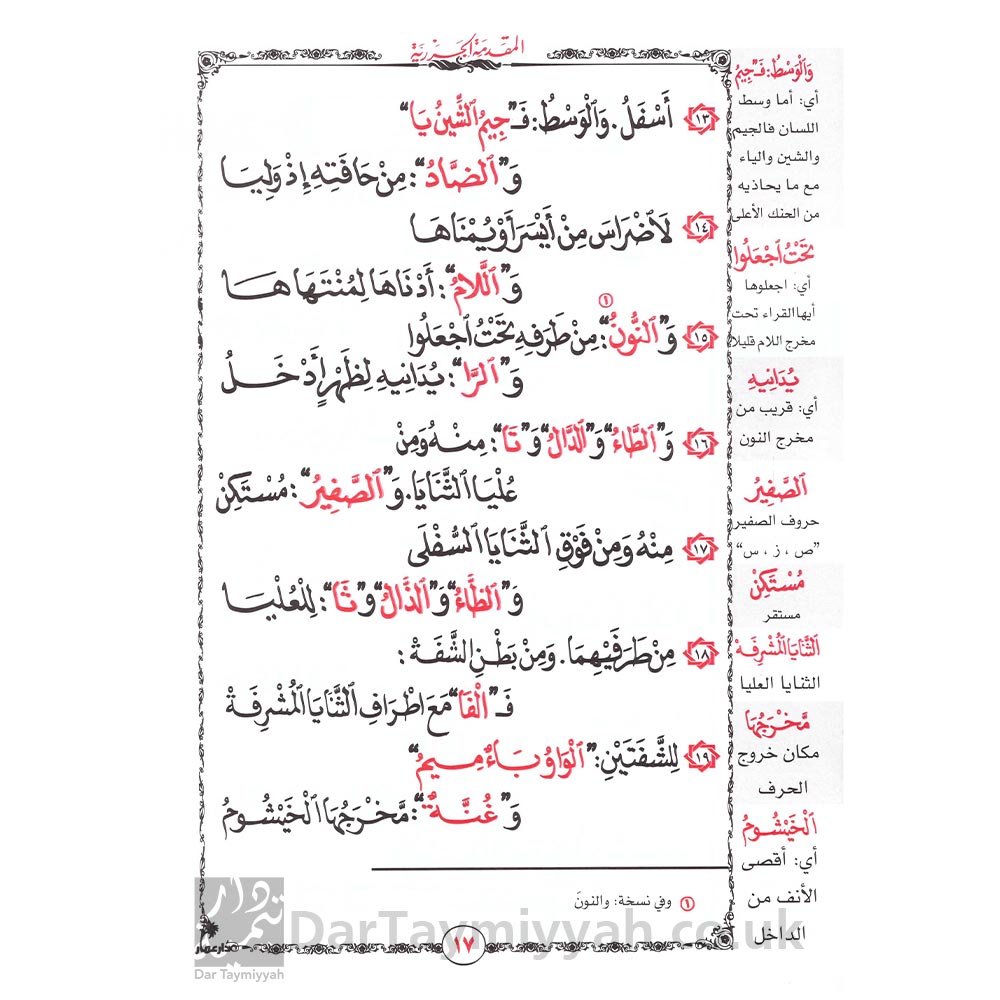 المقدمة الجزرية
١٣ أَسْفَلُ. وَالْوَسْطُ: فَـ"جِيمُ الشِّينُ يَا"
وَ"الضَّادُ": مِنْ حَافَتِهِ إِذْ وَلِيَا
١٤ لَاضْرَاسَ مِنْ أَيْسَرَ أَوْ يُمْنَاهَا
وَ"اللَّامُ": أَدْنَاهَا لِمُنْتَهَاهَا
١٥ وَ"النُّونُ"(١): مِنْ طَرَفِهِ تَحْتُ اجْعَلُوا
وَ"الرَّا": يُدَانِيهِ لِظَهْرٍ أَدْخَلُ
١٦ وَ"الطَّاءُ" وَ"الدَّالُ" وَ"تَا": مِنْهُ وَمِنْ
عُلْيَا الثَّنَايَا. وَ"الصَّفِيرُ": مُسْتَكِنْ
١٧ مِنْهُ وَمِنْ فَوْقِ الثَّنَايَا السُّفْلَى
وَ"الظَّاءُ" وَ"الذَّالُ" وَ"ثَا": لِلْعُلْيَا
١٨ مِنْ طَرَفَيْهِمَا. وَمِنْ بَطْنِ الشَّفَةْ:
فَـ"الْفَا" مَعَ اطْرَافِ الثَّنَايَا الْمُشْرِفَةْ
١٩ لِلشَّفَتَيْنِ: "الْوَاوُ بَاءٌ مِيمُ"
وَ"غُنَّةٌ": مَخْرَجُهَا الْخَيْشُومُ
(١) وفي نسخة: والنونَ
١٧
وَالْوَسْطُ: فَـ"جِيمُ
أي: أما وسط
اللسان فالجيم
والشين والياء
مع ما يحاذيه
من الحنك الأعلى
تَحْتُ اجْعَلُوا
أي: اجعلوها
أيها القراء تحت
مخرج اللام قليلا
يُدَانِيهِ
أي: قريب من
مخرج النون
الصَّفِيرُ
حروف الصفير
"ص ، ز ، س"
مُسْتَكِنْ
مستقر
الثَّنَايَا الْمُشْرِفَةْ
الثنايا العليا
مَخْرَجُهَا
مكان خروج
الحرف
الْخَيْشُومُ
أي: أقصى
الأنف من
الداخل
دار عمار
Dar Taymiyyah
DarTaymiyyah.co.uk